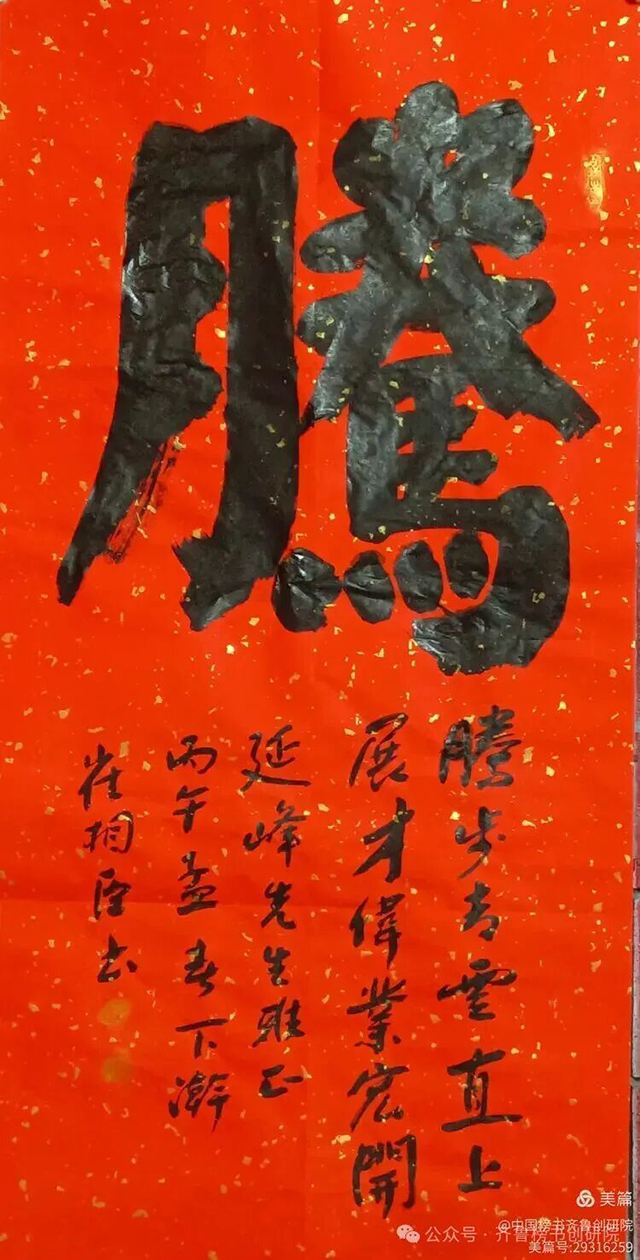 騰
騰步青雲直上
展才偉業宏開
延峰先生雅正
丙午孟春下澣
崔相臣书
美篇
@中国榜书齐鲁创研院
公众号·齐鲁榜书创研院
美篇号:29316259